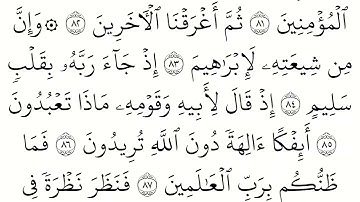 ٱلْمُؤْمِنِينَ ٨١ ثُمَّ أَغْرَقْنَا ٱلْءَاخَرِينَ ٨٢ ۞ وَإِنَّ
مِن شِيعَتِهِۦ لَإِبْرَٰهِيمَ ٨٣ إِذْ جَآءَ رَبَّهُۥ بِقَلْبٍ
سَلِيمٍ ٨٤ إِذْ قَالَ لِأَبِيهِ وَقَوْمِهِۦ مَاذَا تَعْبُدُونَ
٨٥ أَئِفْكًا ءَالِهَةً دُونَ ٱللَّهِ تُرِيدُونَ ٨٦ فَمَا
ظَنُّكُم بِرَبِّ ٱلْعَٰلَمِينَ ٨٧ فَنَظَرَ نَظْرَةً فِى